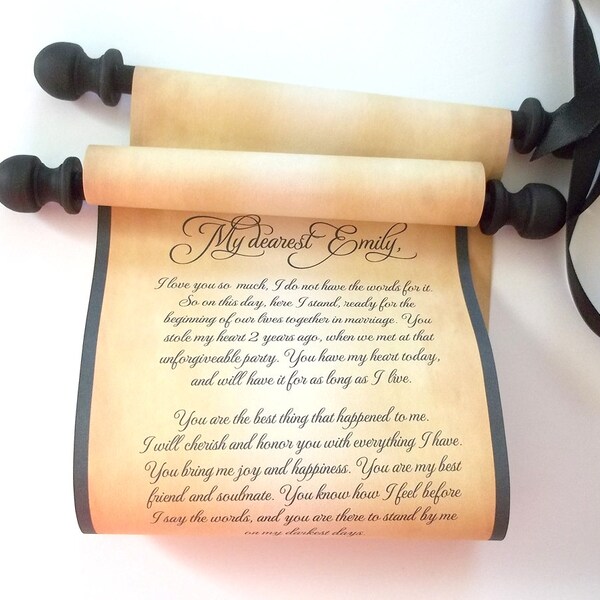 My dearest Emily,
I love you so much, I do not have the words for it.
So on this day, here I stand, ready for the
beginning of our lives together in marriage. You
stole my heart 2 years ago, when we met at that
unforgiveable party. You have my heart today,
and will have it for as long as I live.
You are the best thing that happened to me.
I will cherish and honor you with everything I have.
You bring me joy and happiness. You are my best
friend and soulmate. You know how I feel before
I say the words, and you are there to stand by me
on my darkest days.